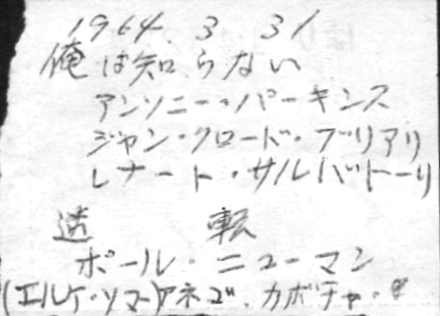 1964. 3. 31
俺は知らない
アンソニー・パーキンス
ジャン・クロード・ブリアリ
レナート・サルバトーリ
逆 転
ポール・ニューマン
(エルケ・ソマー)アネゴ、カボチャ・